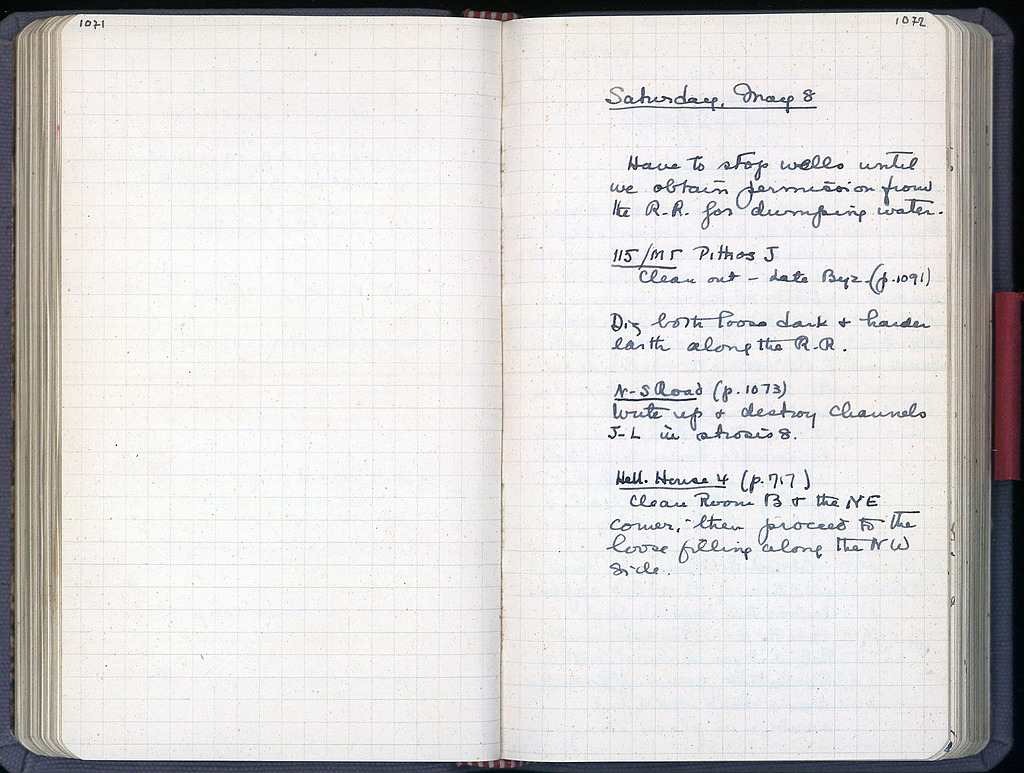 1071
1072
Saturday, May 8
Have to stop wells until
we obtain permission from
the R.R. for dumping water.
115/MT Pithos J
Clean out - Late Byz. (p.1091)
Dig both loose dark + harder
earth along the R.R.
N-S Road (p.1073)
Write up + destroy Channels
J-L in strosis 8.
Hell. House 4 (p.717)
Clean Room B + the NE
corner, then proceed to the
loose filling along the NW
side.